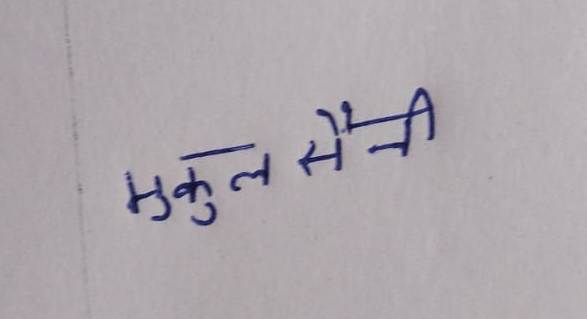 मुकुल सैनी